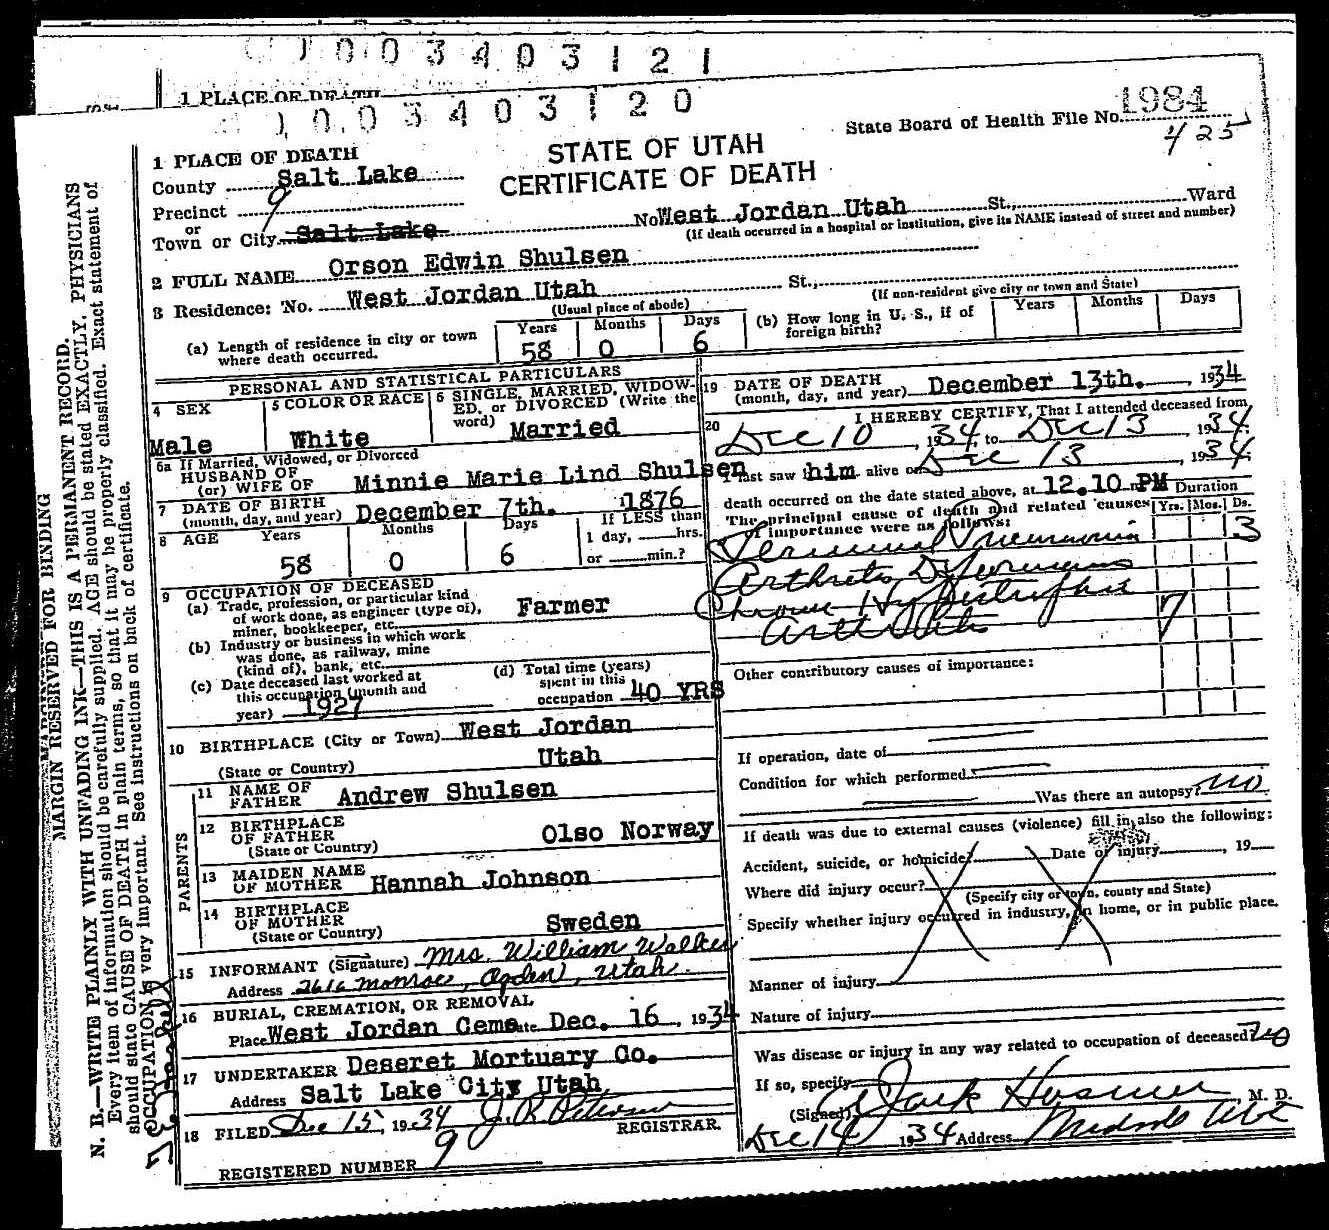 003403121
1 PLACE OF DEATH
003403120
State Board of Health File No. 1984
425
STATE OF UTAH
CERTIFICATE OF DEATH
1 PLACE OF DEATH
County Salt Lake
Precinct 9
or
Town or City Salt Lake No West Jordan Utah St., Ward
(If death occurred in a hospital or institution, give its NAME instead of street and number)
2 FULL NAME Orson Edwin Shulsen
3 Residence: No. West Jordan Utah St.,
(Usual place of abode) (If non-resident give city or town and State)
(a) Length of residence in city or town where death occurred. Years 58 Months 0 Days 6
(b) How long in U. S., if of foreign birth? Years Months Days
PERSONAL AND STATISTICAL PARTICULARS
4 SEX Male
5 COLOR OR RACE White
6 SINGLE, MARRIED, WIDOWED, or DIVORCED (Write the word) Married
6a If Married, Widowed, or Divorced
HUSBAND OF
(or) WIFE OF Minnie Marie Lind Shulsen
7 DATE OF BIRTH
(month, day, and year) December 7th. 1876
8 AGE Years 58 Months 0 Days 6 If LESS than 1 day, hrs. or min.?
9 OCCUPATION OF DECEASED
(a) Trade, profession, or particular kind of work done, as engineer (type of), miner, bookkeeper, etc. Farmer
(b) Industry or business in which work was done, as railway, mine (kind of), bank, etc.
(c) Date deceased last worked at this occupation (month and year) 1927
(d) Total time (years) spent in this occupation 40 YRS
10 BIRTHPLACE (City or Town) West Jordan
(State or Country) Utah
PARENTS
11 NAME OF FATHER Andrew Shulsen
12 BIRTHPLACE OF FATHER
(State or Country) Olso Norway
13 MAIDEN NAME OF MOTHER Hannah Johnson
14 BIRTHPLACE OF MOTHER
(State or Country) Sweden
15 INFORMANT (Signature) Mrs. William Walker
Address 2616 Monroe, Ogden, Utah.
16 BURIAL, CREMATION, OR REMOVAL
Place West Jordan Ceme Date Dec. 16, 1934
17 UNDERTAKER Deseret Mortuary Co.
Address Salt Lake City Utah
18 FILED Dec 15, 1934 J. R. Peterson REGISTRAR.
REGISTERED NUMBER 9
19 DATE OF DEATH
(month, day, and year) December 13th. , 1934
20 I HEREBY CERTIFY, That I attended deceased from
Dec 10, 1934, to Dec 13, 1934.
I last saw him alive on Dec 13, 1934.
death occurred on the date stated above, at 12.10 m PM
The principal cause of death and related causes of importance were as follows:
Duration
Yrs. Mos. Ds.
Terminal Pneumonia 3
Arthritis Deformans
Chronic Hypertrophic
Arthritis 7
Other contributory causes of importance:
If operation, date of
Condition for which performed
Was there an autopsy? no
If death was due to external causes (violence) fill in also the following:
Accident, suicide, or homicide? Date of injury , 19
Where did injury occur?
(Specify city or town, county and State)
Specify whether injury occurred in industry, in home, or in public place.
Manner of injury
Nature of injury
Was disease or injury in any way related to occupation of deceased? no
If so, specify
(Signed) , M. D.
Dec 14 1934 Address Midvale Utah
MARGIN RESERVED FOR BINDING
N. B.—WRITE PLAINLY WITH UNFADING INK—THIS IS A PERMANENT RECORD.
Every item of information should be carefully supplied. AGE should be stated EXACTLY. PHYSICIANS
should state CAUSE OF DEATH in plain terms, so that it may be properly classified. Exact statement of
OCCUPATION is very important. See instructions on back of certificate.